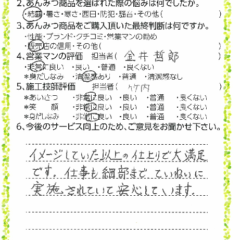 2.あんみつ商品を選ばれた際の悩みは何でしたか。
・結露・暑さ・寒さ・西日・防犯・騒音・その他( )
3.あんみつ商品をご購入頂いた最終判断は何ですか。
・生産・ブランド・クチコミ・営業マンの勧め
・販売店の信用・その他( )
4.営業マンの評価 担当者( 金井 哲郎 )
・非常に良い ・良い ・普通 ・良くない
*身だしなみ ・清潔感あり ・普通 ・清潔感なし
5.施工技師評価 担当者( 竹内 )
*あいさつ ・非常に良い ・良い ・普通 ・良くない
*笑 顔 ・非常に良い ・良い ・普通 ・良くない
*身だしなみ ・非常に良い ・良い ・普通 ・良くない
6.今後のサービス向上のため、ご意見をお聞かせ下さい。
イメージしていた以上の仕上りで大満足
です。仕事も細部まで、ていねいに
実施されていて安心しています。